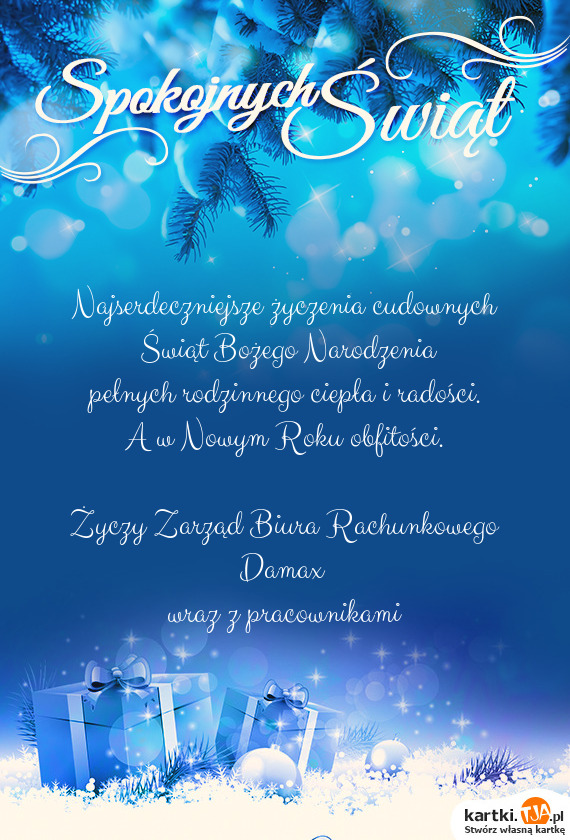 Spokojnych Świąt
Najserdeczniejsze życzenia cudownych
Świąt Bożego Narodzenia
pełnych rodzinnego ciepła i radości.
A w Nowym Roku obfitości.
Życzy Zarząd Biura Rachunkowego
Damax
wraz z pracownikami
kartki.TJA.pl
Stwórz własną kartkę